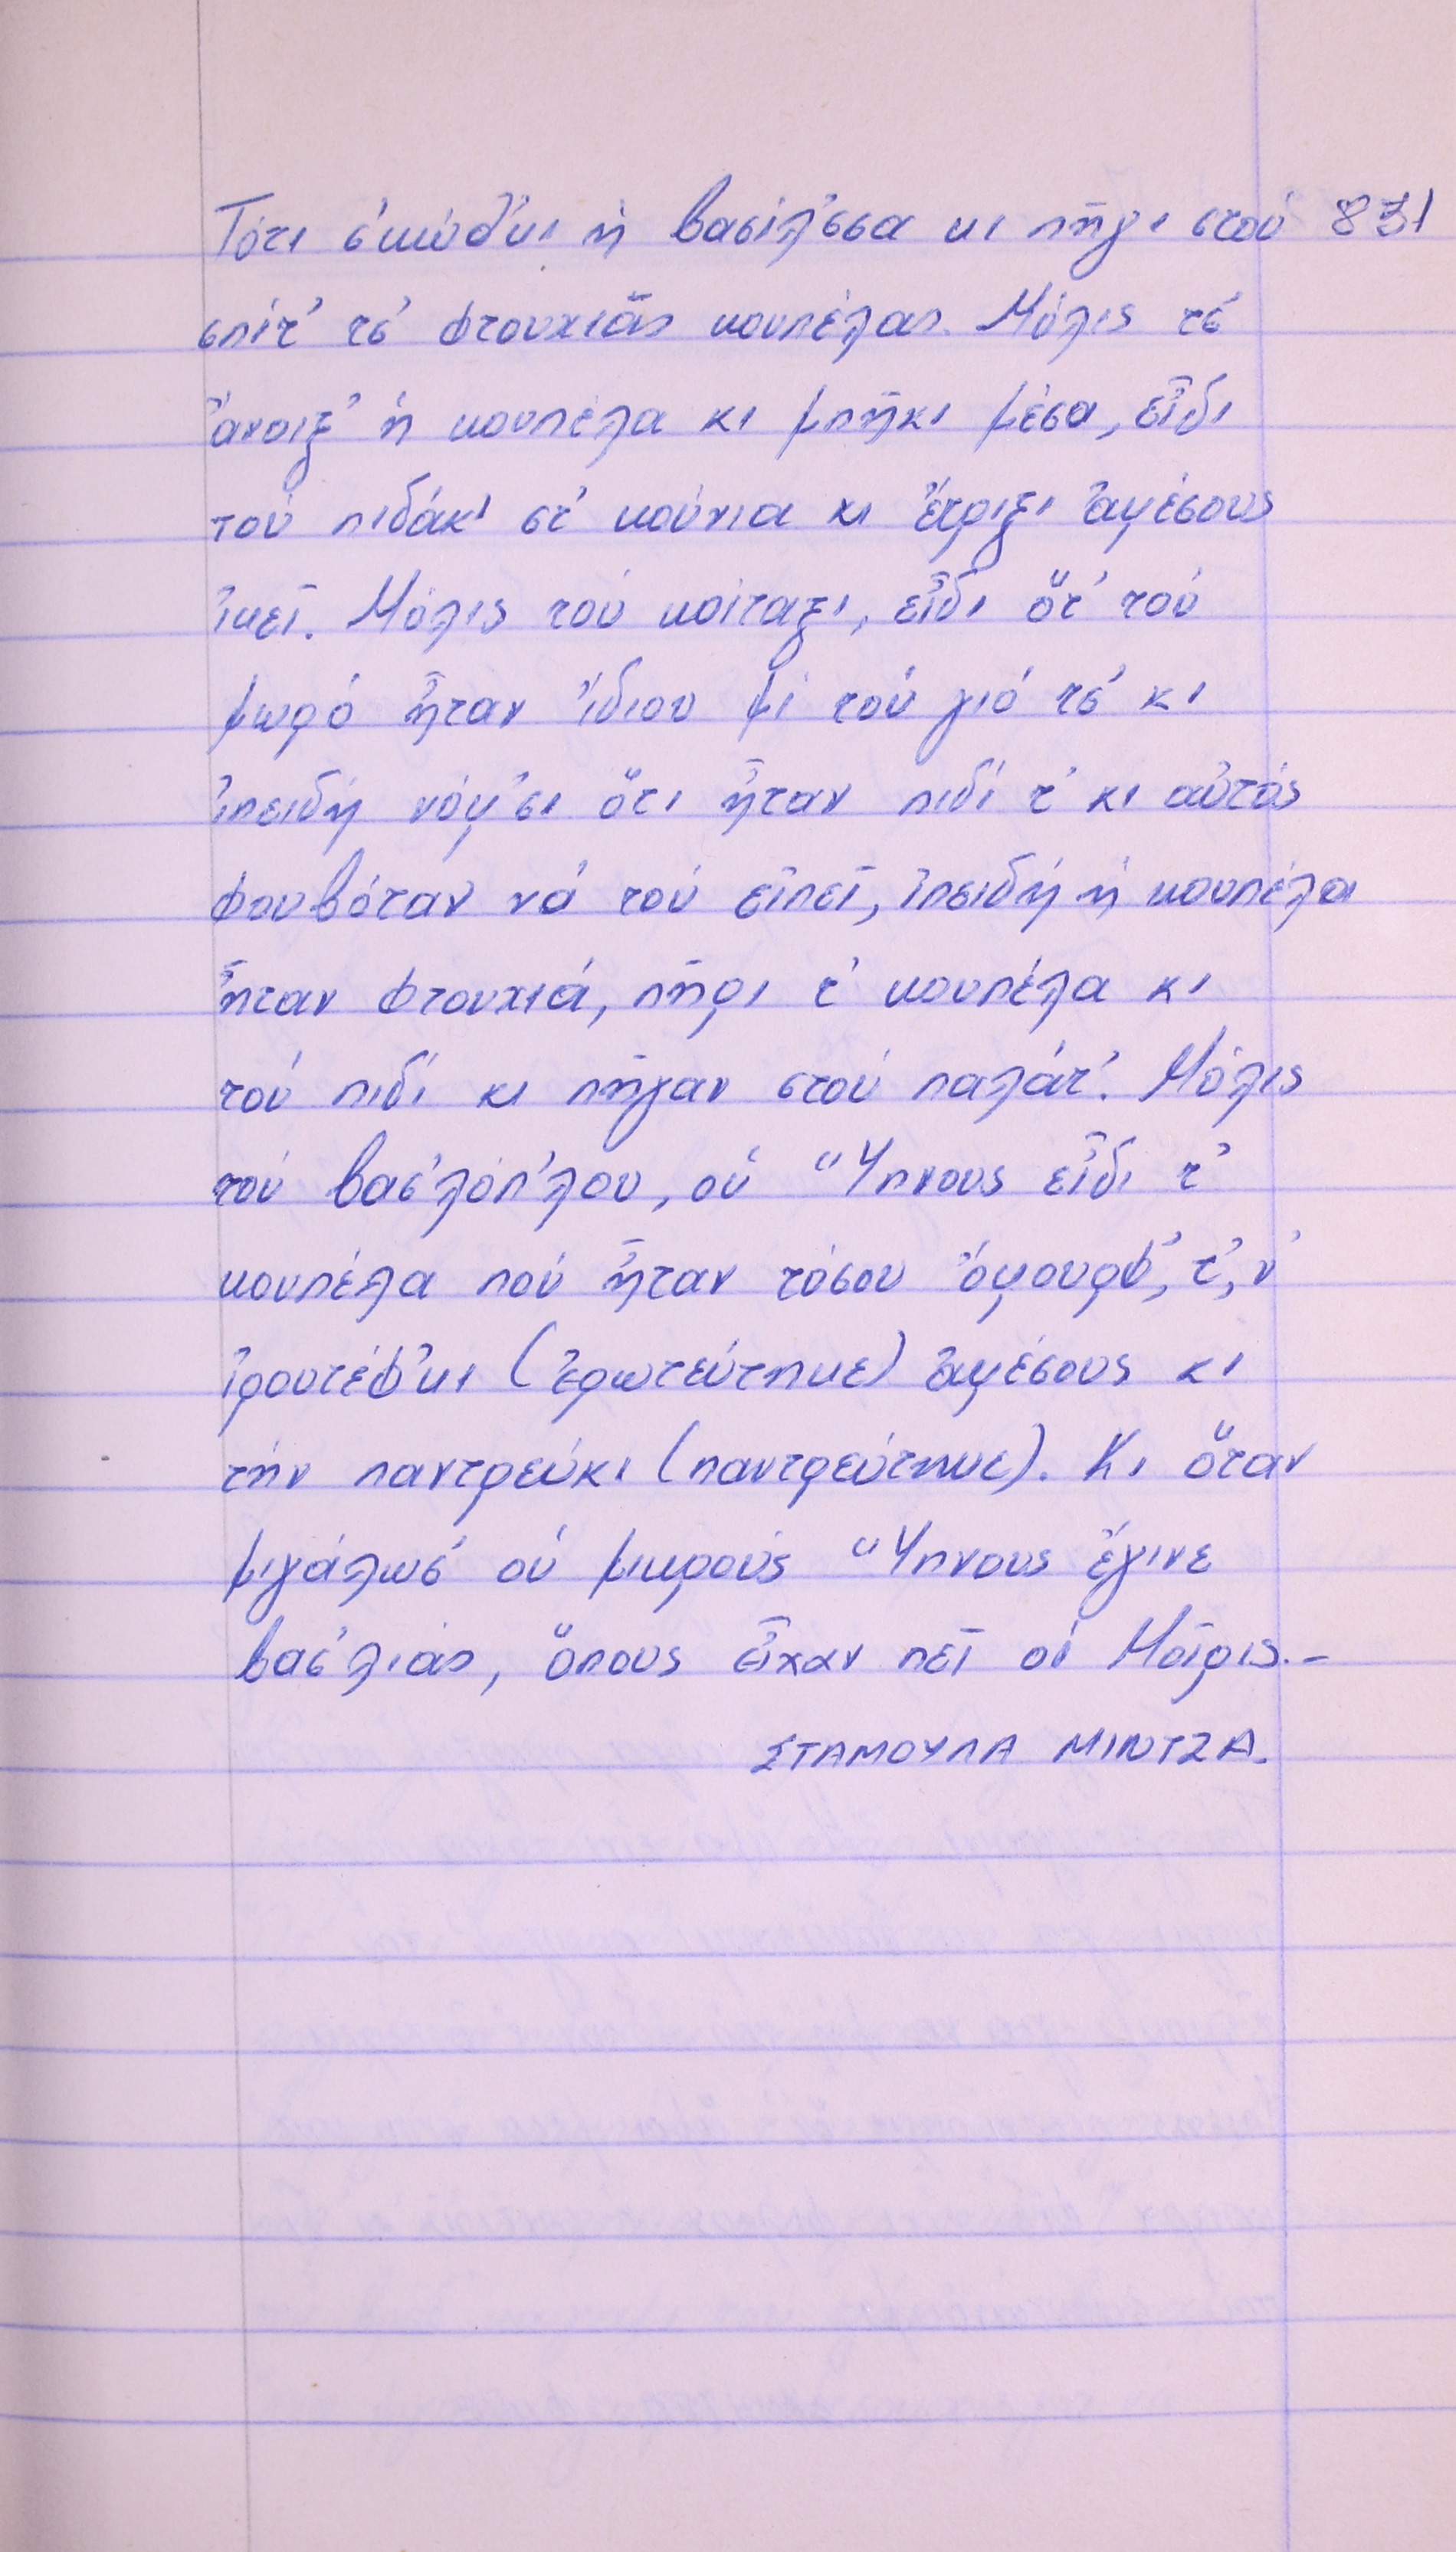 Τότι σ'κώθ'κι ἡ βασίλ'σσα κι πῆγι στού 831
σπίτ' τσ' φτουχιᾶς κουπέλας. Μόλις τσ'
ἄνοιξ' ἡ κουπέλα κι μπῆκι μέσα, εἶδι
τού πιδάκ' στ' κούνια κι ἔτριξι ἀμέσους
ἰκεῖ. Μόλις τού κοίταξι, εἶδι ὅτ' τού
μωρό ἦταν ἴδιου μί τού γιό τσ' κι
ἰπειδή νόμ'σι ὅτι ἦταν πιδί τ' κι αὐτός
φουβόταν νά τού εἰπεῖ, ἰπειδή ἡ κουπέλα
ἦταν φτουχιά, πῆρι τ' κουπέλα κι
τού πιδί κι πῆγαν στού παλάτ'. Μόλις
τού βασ'λόπ'λου, οὑ Ὕπνους εἶδι τ'
κουπέλα πού ἦταν τόσου ὄμουρφ', τ',ν'
ἰρουτέφ'κι (ἐρωτεύτηκε) ἀμέσους κι
τήν παντρεύκι (παντρεύτηκε). Κι ὅταν
μιγάλωσ' οὑ μικρούς Ὕπνους ἔγινε
βασ'λιάς, ὅπους εἶχαν πεῖ οἱ Μοῖρις.-
ΣΤΑΜΟΥΛΑ ΜΙΝΤΖΑ.